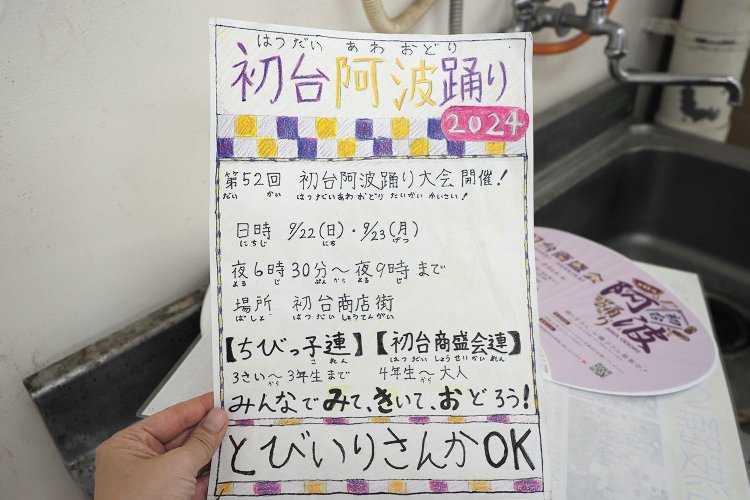 はつだい あわ おどり
初台阿波踊り
2024
第52回 初台阿波踊り大会開催!
だい かい はつだいあわ おどり たいかい かいさい!
日時 9/22(日)・9/23(月)
にちじ にち げつ
夜6時30分~夜9時まで
よる じ ぷん から よる じ
場所 初台商店街
ばしょ はつだい しょうてんがい
【ちびっ子連】【初台商盛会連】
これん はつだい しょうせいかいれん
3さい~3年生まで 4年生~大人
から から
みんなでみて、きいて、おどろう!
とびいりさんかOK
初台商盛会
初台
阿波
踊り